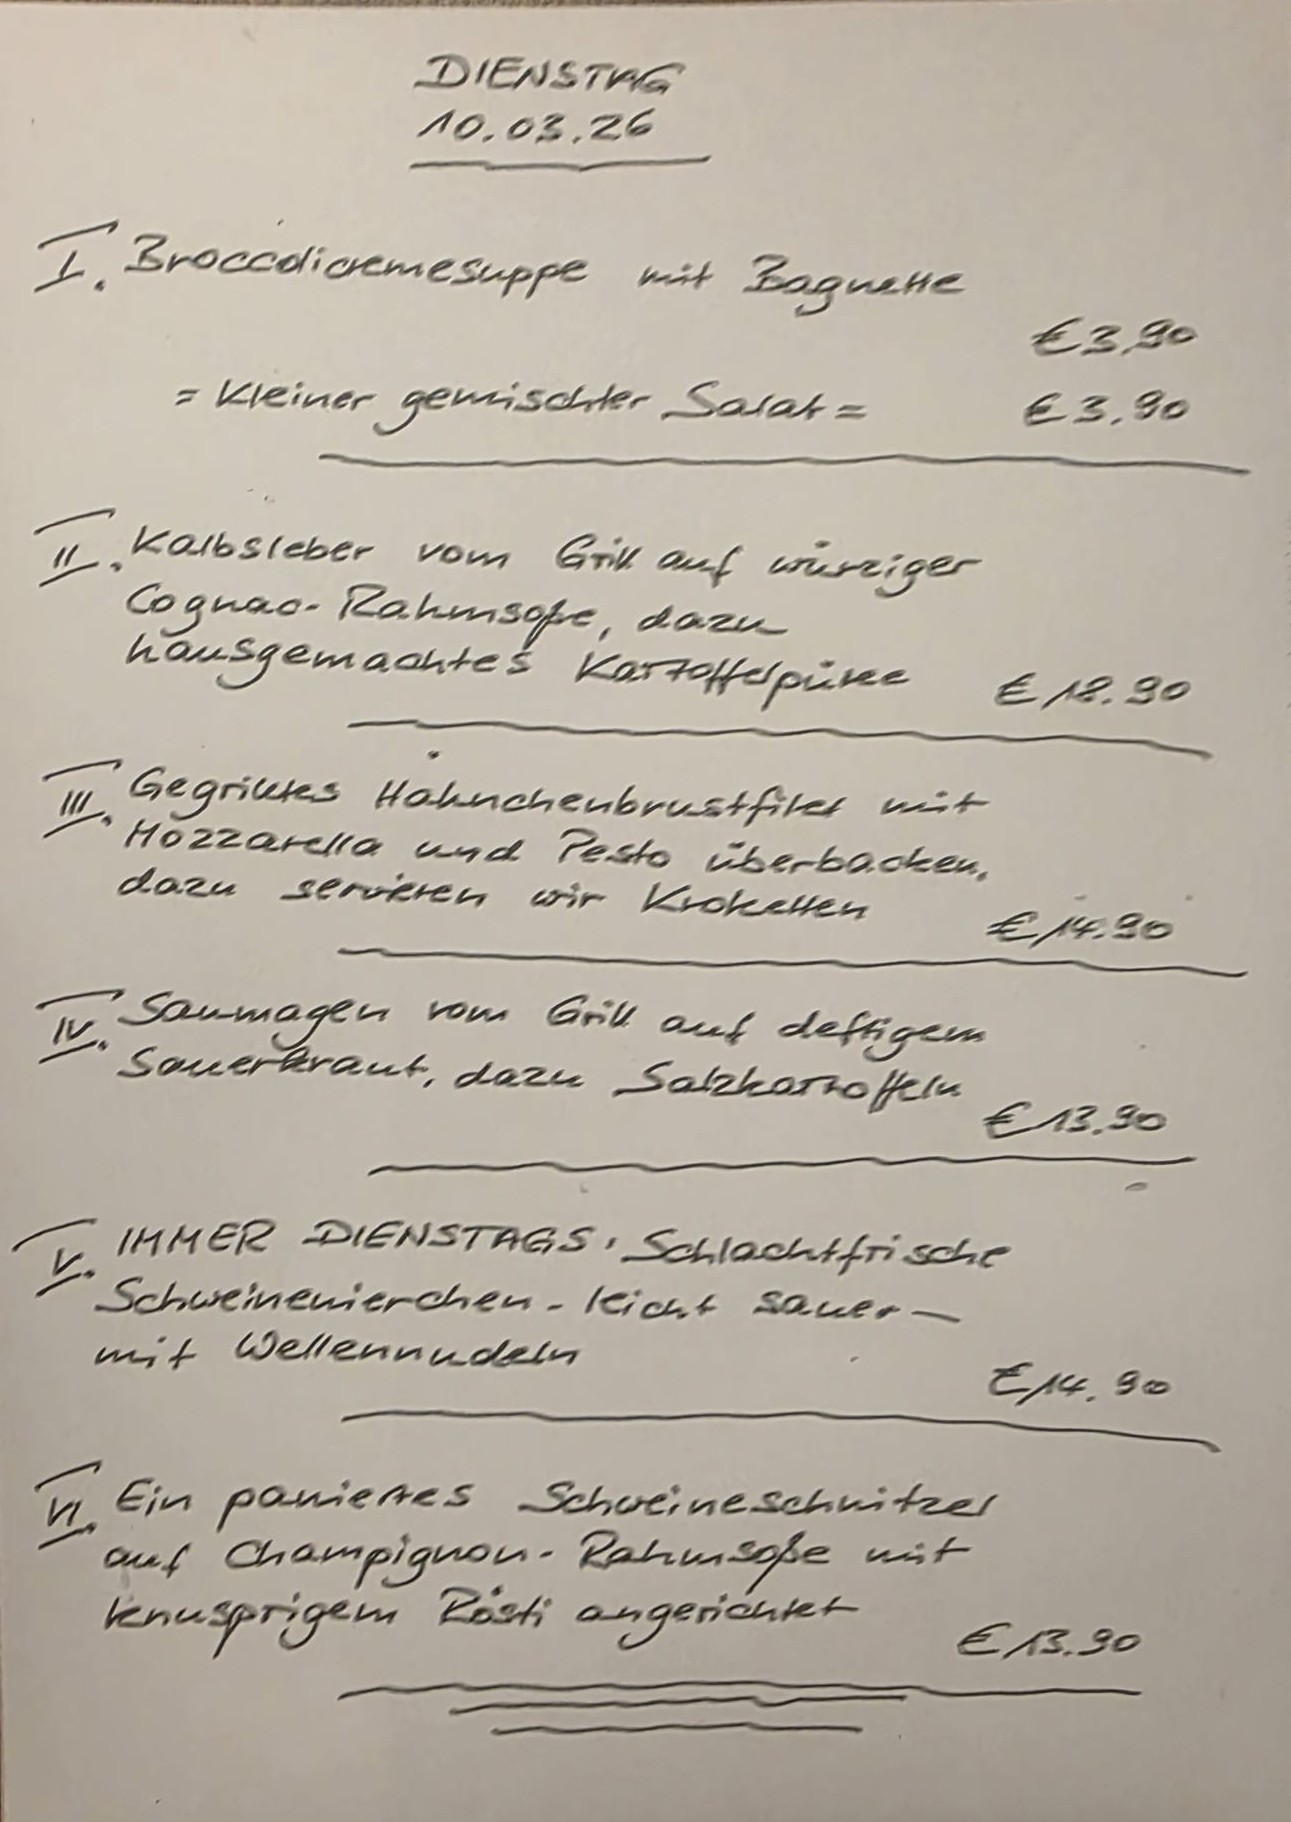 DIENSTAG
10.03.26
I. Broccolicremesuppe mit Baguette
€ 3,90
= Kleiner gemischter Salat = € 3.90
II. Kalbsleber vom Grill auf würziger
Cognac-Rahmsoße, dazu
hausgemachtes Kartoffelpüree € 18.90
III. Gegrilltes Hähnchenbrustfilet mit
Mozzarella und Pesto überbacken,
dazu servieren wir Kroketten € 14.90
IV. Saumagen vom Grill auf deftigem
Sauerkraut, dazu Salzkartoffeln
€ 13.90
V. IMMER DIENSTAGS, Schlachtfrische
Schweinenierchen - leicht sauer -
mit Wellennudeln
€ 14.90
VI. Ein paniertes Schweineschnitzel
auf Champignon-Rahmsoße mit
knusprigem Rösti angerichtet
€ 13.90